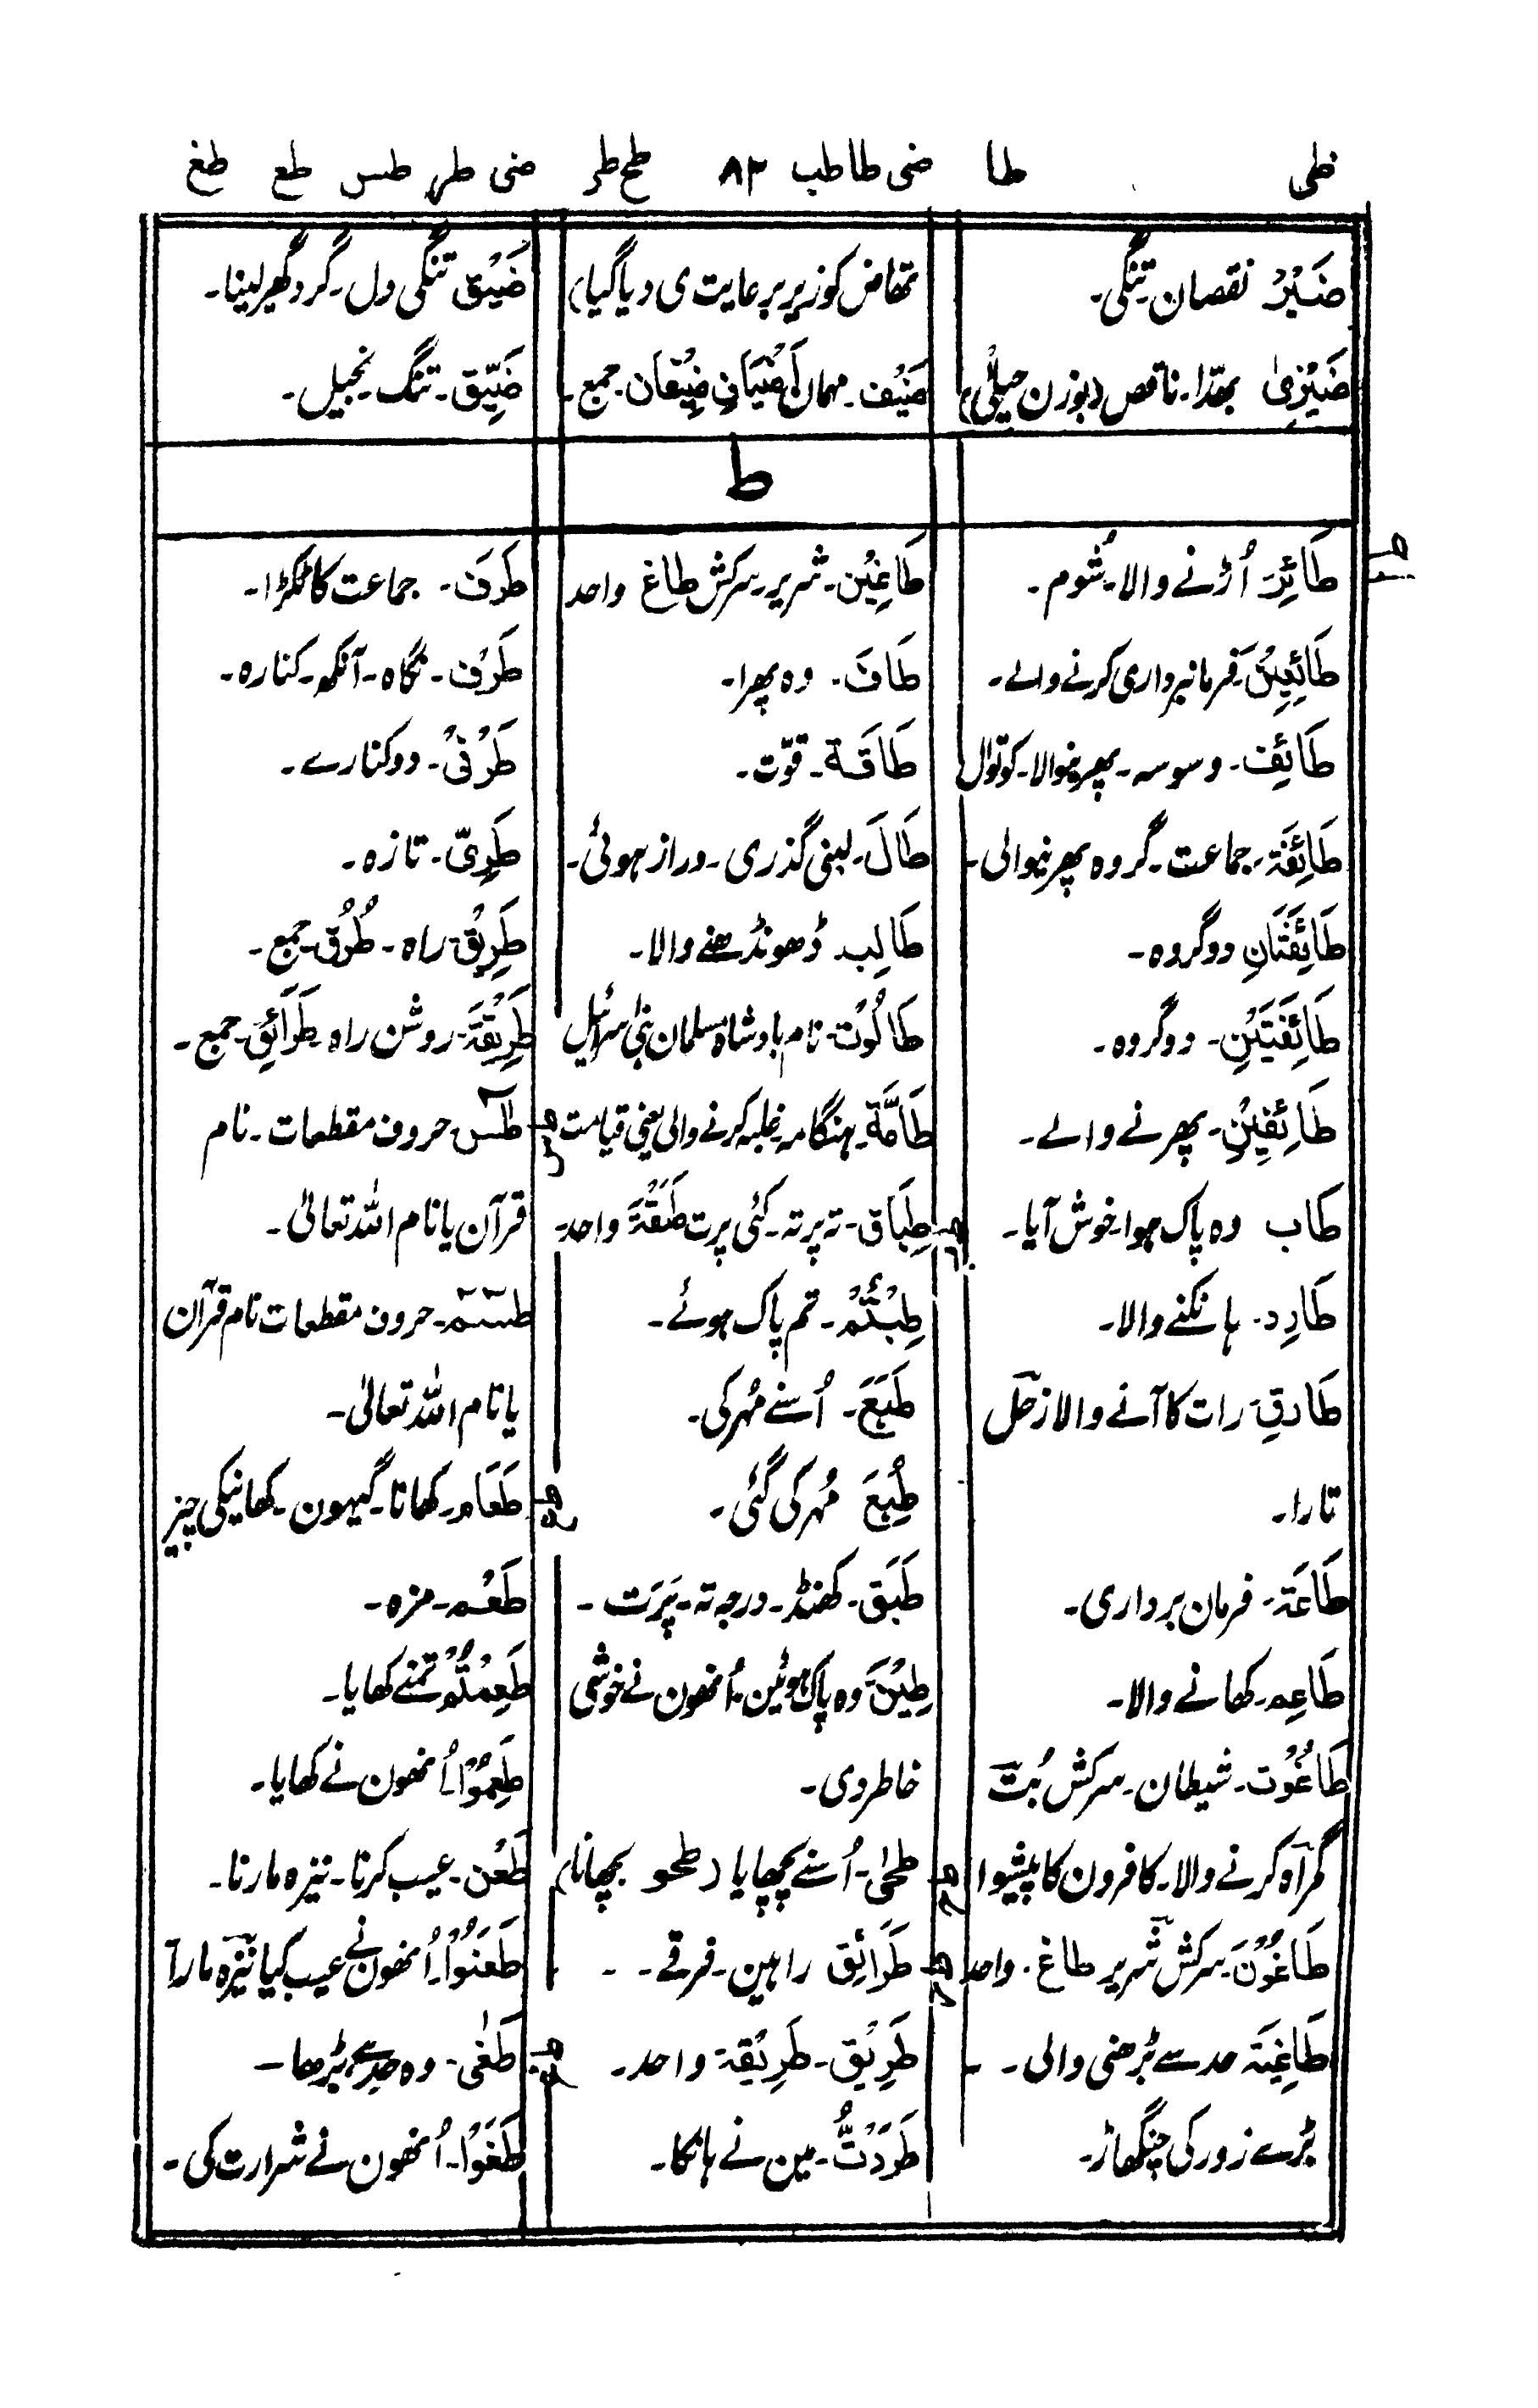 ضی طا ضی طا طب ۸۲ طح طر ضی طر طس طع طغ
ضَیْرُ نقصان۔ تنگی۔
ضَیْزٰی بھدّا۔ ناقص (بوزن حبلیٰ)
تھا ض کو زیر برعایت ی دیا گیا)
ضَیْف۔ مہمان۔ ضِیْفَان۔ جمع۔
ضَیْق تنگی دل۔ گرد گھیر لینا۔
ضَیِّق۔ تنگ۔ بخیل۔
ط
طَائِرَ۔ اُڑنے والا۔ شُوم۔
طَائِعِیْنَ۔ فرمانبرداری کرنے والے۔
طَائِف۔ وسوسہ۔ پھرنیوالا۔ کوتوال
طَائِفَة۔ جماعت۔ گروہ پھرنیوالی۔
طَائِفَتَانِ دو گروہ۔
طَائِفَتَیْنِ۔ دو گروہ۔
طَائِفِیْنَ۔ پھرنے والے۔
طَاب وہ پاک ہوا۔ خوش آیا۔
طَارِد۔ ہانکنے والا۔
طَارِق۔ رات کا آنے والا زحل
تارا۔
طَاعَة۔ فرمان برداری۔
طَاعِم۔ کھانے والا۔
طَاغُوْت۔ شیطان۔ سرکش بُت
گمراہ کرنے والا۔ کافرون کا پیشوا
طَاغُوْنَ۔ سرکش شریر طاغ۔ واحد
طَاغِیَة حد سے بڑھنی والی۔
بڑے زور کی چنگھاڑ۔
طَاغِیْن۔ شریر۔ سرکش طاغ واحد
طَافَ۔ وہ پھرا۔
طَاقَة۔ قوّت۔
طَالَ۔ لبنی گذری۔ دراز ہوئی۔
طَالِب ڈھونڈھنے والا۔
طَالُوْت۔ نام بادشاہ مسلمان بنی اسرائیل
طَامَّة۔ ہنگامہ۔ غلبہ کرنے والی یعنی قیامت
طِبَاق۔ تہ پرتہ۔ کئی پرت طَبَقَة واحد۔
طِبْتُمْ۔ تم پاک ہوئے۔
طَبَعَ۔ اُسنے مُہر کی۔
طُبِعَ مُہر کی گئی۔
طَبَق۔ کھنڈ۔ درجہ تہ۔ پَرَت۔
طِبْنَ وہ پاک ہوئین۔ اُنھون نے خوشی
خاطر دی۔
طحٰی۔ اُسنے بچھایا (طحو بچھانا)
طَرَائِق راہین۔ فرقے۔
طَرِیْق۔ طَرِیْقة واحد۔
طَرَدْتُّ۔ مین نے ہانکا۔
طَرَف۔ جماعت کا ٹکڑا۔
طَرْف۔ نگاہ۔ آنکھ۔ کنارہ۔
طَرْفَیْ۔ دو کنارے۔
طَرِیّ۔ تازہ۔
طَرِیْق۔ راہ۔ طُرُق۔ جمع۔
طَرِیْقَة۔ روشن راہ۔ طَرَائِق۔ جمع۔
طٰسٓ۔ حروف مقطعات۔ نام
قرآن یا نام اللہ تعالیٰ۔
طسٓمٓ۔ حروف مقطعات نام قرآن
یا نام اللہ تعالیٰ۔
طَعَام۔ کھانا۔ گیہون۔ کھانیکی چیز
طَعْم۔ مزہ۔
طَعِمْتُمْ تمنے کھایا۔
طَعِمُوْا۔ اُنھون نے کھایا۔
طَعْن۔ عیب کرنا۔ نیزہ مارنا۔
طَعَنُوْا۔ اُنھون نے عیب کیا نیزہ مارا
طَغٰی۔ وہ حد سے بڑھا۔
طَغَوْا۔ اُنھون نے شرارت کی۔